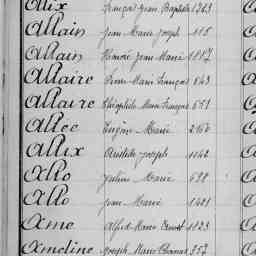 Alix François Jean Baptiste 1203
Allain Jean Marie Joseph 115
Allain Honoré Jean Marie 1117
Allaire Pierre Marie François 643
Allaire Théophile Marie François 653
Allée Eugène Marie 2166
Allix Aristide Joseph 1142
Allo Julien Marie 698
Allo Jean Marie 1421
Ame Alfred Marie Ernest 1123
Ameline Joseph Marie 357